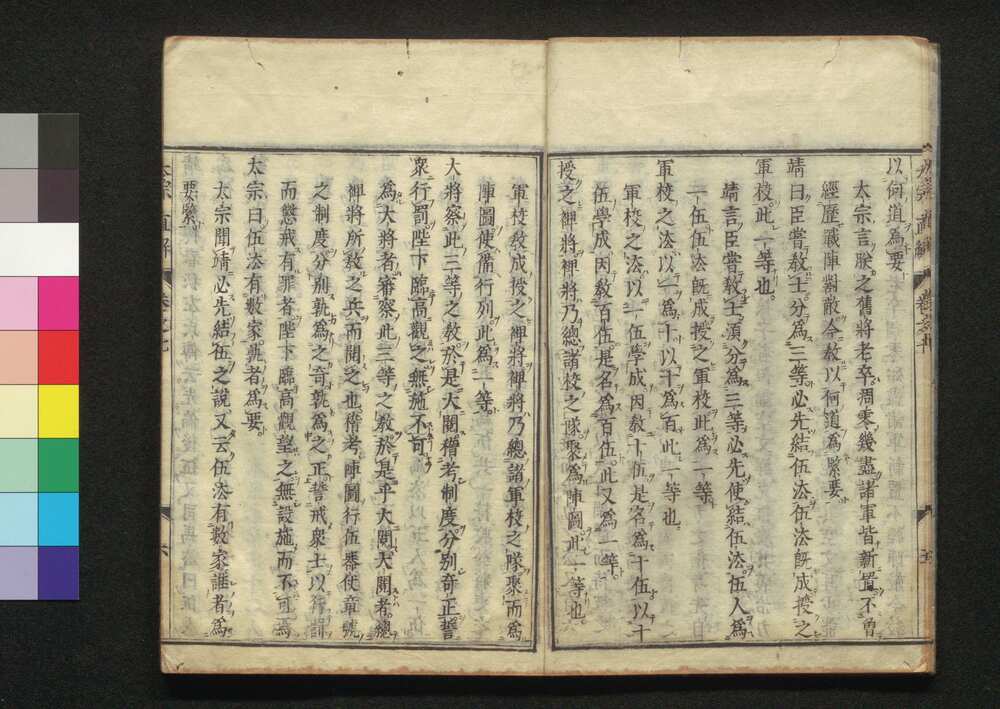 以何道爲要
太宗言朕之舊將老卒凋零幾盡諸軍皆新置不曾
經歷戰陣對敵今敎以何道爲緊要
靖曰臣嘗敎士分爲三等必先結伍法伍法旣成授之
軍校此一等也
靖言臣嘗敎士須分爲三等必先使結伍法伍人爲
一伍伍法旣成授之軍校此爲一等
軍校之法以一爲十以十爲百此一等也
軍校之法以一伍學成因敎十伍是名爲十伍以十
伍學成因敎百伍是名爲百伍此又爲一等
授之裨將裨將乃總諸校之隊聚爲陣圖此一等也
軍校敎成授之裨將裨將乃總諸軍校之隊聚而爲
陣圖使備行列此爲一等
大將察此三等之敎於是大閱稽考制度分别奇正誓
衆行罰陛下臨高觀之無施不可
爲大將者審察此三等之敎於是乎大閱大閱者總
裨將所敎之兵而閱之也稽考陣圖行伍器使章號
之制度分别孰爲之奇孰爲之正誓戒衆士以行罰
而懲戒有罪者陛下臨高觀望之無設施而不可焉
太宗曰伍法有數家孰者爲要
太宗聞靖必先結伍之說又云伍法有數家誰者爲
要緊
直解
卷之七
六